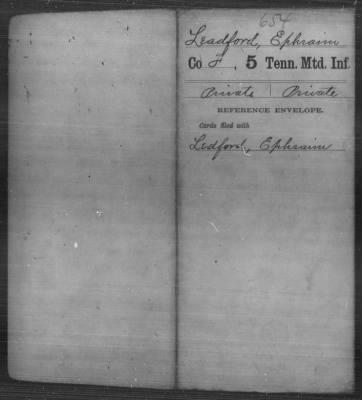 654
Leadford, Ephraim
Co F, 5 Tenn. Mtd. Inf.
Private | Private
REFERENCE ENVELOPE.
Cards filed with
Ledford, Ephraim